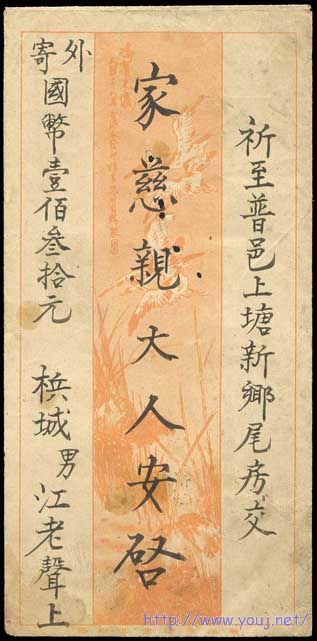 祈至普邑上塘新鄉尾房交
家慈親大人安啓
外寄國幣壹佰叁拾元
梹城男江老聲上
http://www.youj.net/